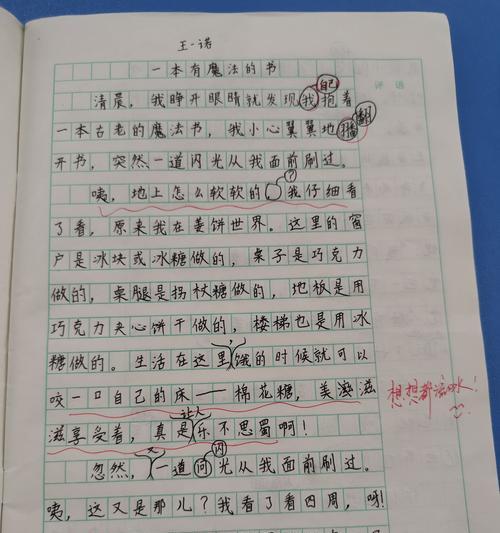 王一诺
一本有魔法的书 评语
清晨，我睁开眼睛就发现我自己抱着
一本古老的魔法书，我小心翼翼地播翻
开书，突然一道闪光从我面前刷过。
咦，地上怎么软软的？我仔细看
了看，原来我在姜饼世界。这里的窗
户是冰块或冰糖做的，桌子是巧克力
做的，桌腿是拐杖糖做的，地板是用
巧克力夹心饼干做的，楼梯也是用冰
糖做的。生活在这里，饿的时候就可以
咬一口自己的床——棉花糖，美滋滋
滋享受着，真是让人乐不思蜀啊！
忽然，又一道闪光从我面前刷过。
咦，这又是那儿？我看了看四周，呀！
想想都流口水！